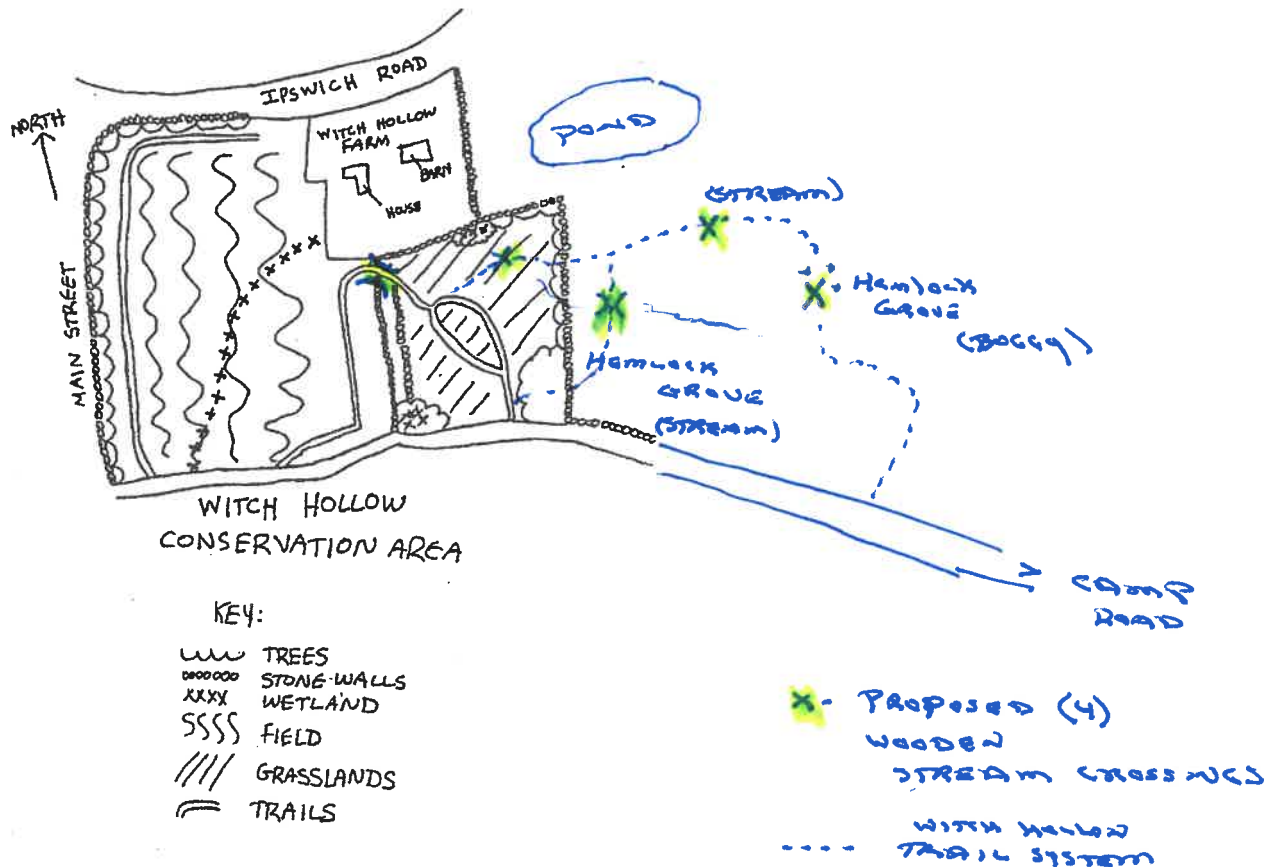 IPSWICH ROAD
NORTH
WITCH HOLLOW
FARM
BARN
HOUSE
MAIN STREET
POND
(STREAM)
HEMLOCK
GROVE
(BOGGY)
HEMLOCK
GROVE
(STREAM)
WITCH HOLLOW
CONSERVATION AREA
CAMP
ROAD
KEY:
TREES
STONE-WALLS
XXXX WETLAND
FIELD
GRASSLANDS
TRAILS
X - PROPOSED (4)
WOODEN
STREAM CROSSINGS
WITCH HOLLOW
---- TRAIL SYSTEM